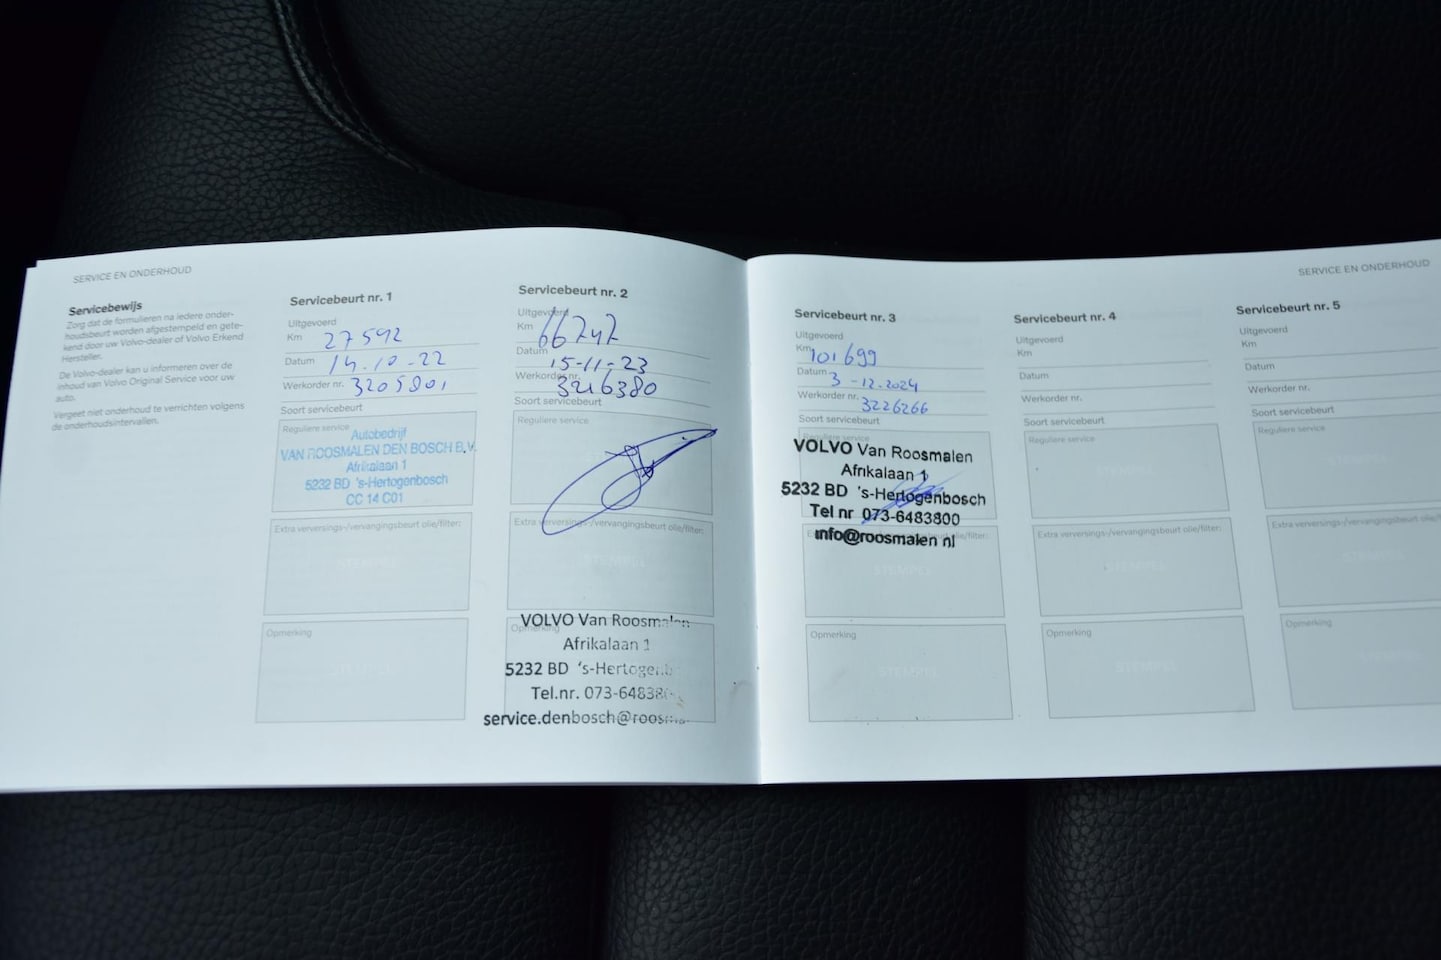 SERVICE EN ONDERHOUD
Servicebewijs
Zorg dat de formulieren na iedere onder-
houdsbeurt worden afgestempeld en gete-
kend door uw Volvo-dealer of Volvo Erkend
Hersteller.
De Volvo-dealer kan u informeren over de
inhoud van Volvo Original Service voor uw
auto.
Vergeet niet onderhoud te verrichten volgens
de onderhoudsintervallen.
Servicebeurt nr. 1
Uitgevoerd
Km 27592
Datum 14.10-22
Werkorder nr. 3205801
Soort servicebeurt
Reguliere service
Autobedrijf
VAN ROOSMALEN DEN BOSCH B.V.
Afrikalaan 1
5232 BD 's-Hertogenbosch
CC 14 C01
Extra verversings-/vervangingsbeurt olie/filter:
STEMPEL
Opmerking
STEMPEL
Servicebeurt nr. 2
Uitgevoerd
Km 66747
Datum 15-11-23
Werkorder nr. 3216380
Soort servicebeurt
Reguliere service
Extra verversings-/vervangingsbeurt olie/filter:
STEMPEL
Opmerking
VOLVO Van Roosmalen
Afrikalaan 1
5232 BD 's-Hertogenb
Tel.nr. 073-64838
service.denbosch@roosm
SERVICE EN ONDERHOUD
Servicebeurt nr. 3
Uitgevoerd
Km 101699
Datum 3-12-2024
Werkorder nr. 3226266
Soort servicebeurt
Reguliere service
VOLVO Van Roosmalen
Afrikalaan 1
5232 BD 's-Hertogenbosch
Tel nr 073-6483800
info@roosmalen nl
STEMPEL
Opmerking
STEMPEL
Servicebeurt nr. 4
Uitgevoerd
Km
Datum
Werkorder nr.
Soort servicebeurt
Reguliere service
STEMPEL
Extra verversings-/vervangingsbeurt olie/filter:
STEMPEL
Opmerking
STEMPEL
Servicebeurt nr. 5
Uitgevoerd
Km
Datum
Werkorder nr.
Soort servicebeurt
Reguliere service
Extra verversings-/vervangingsbeurt olie/filter:
Opmerking